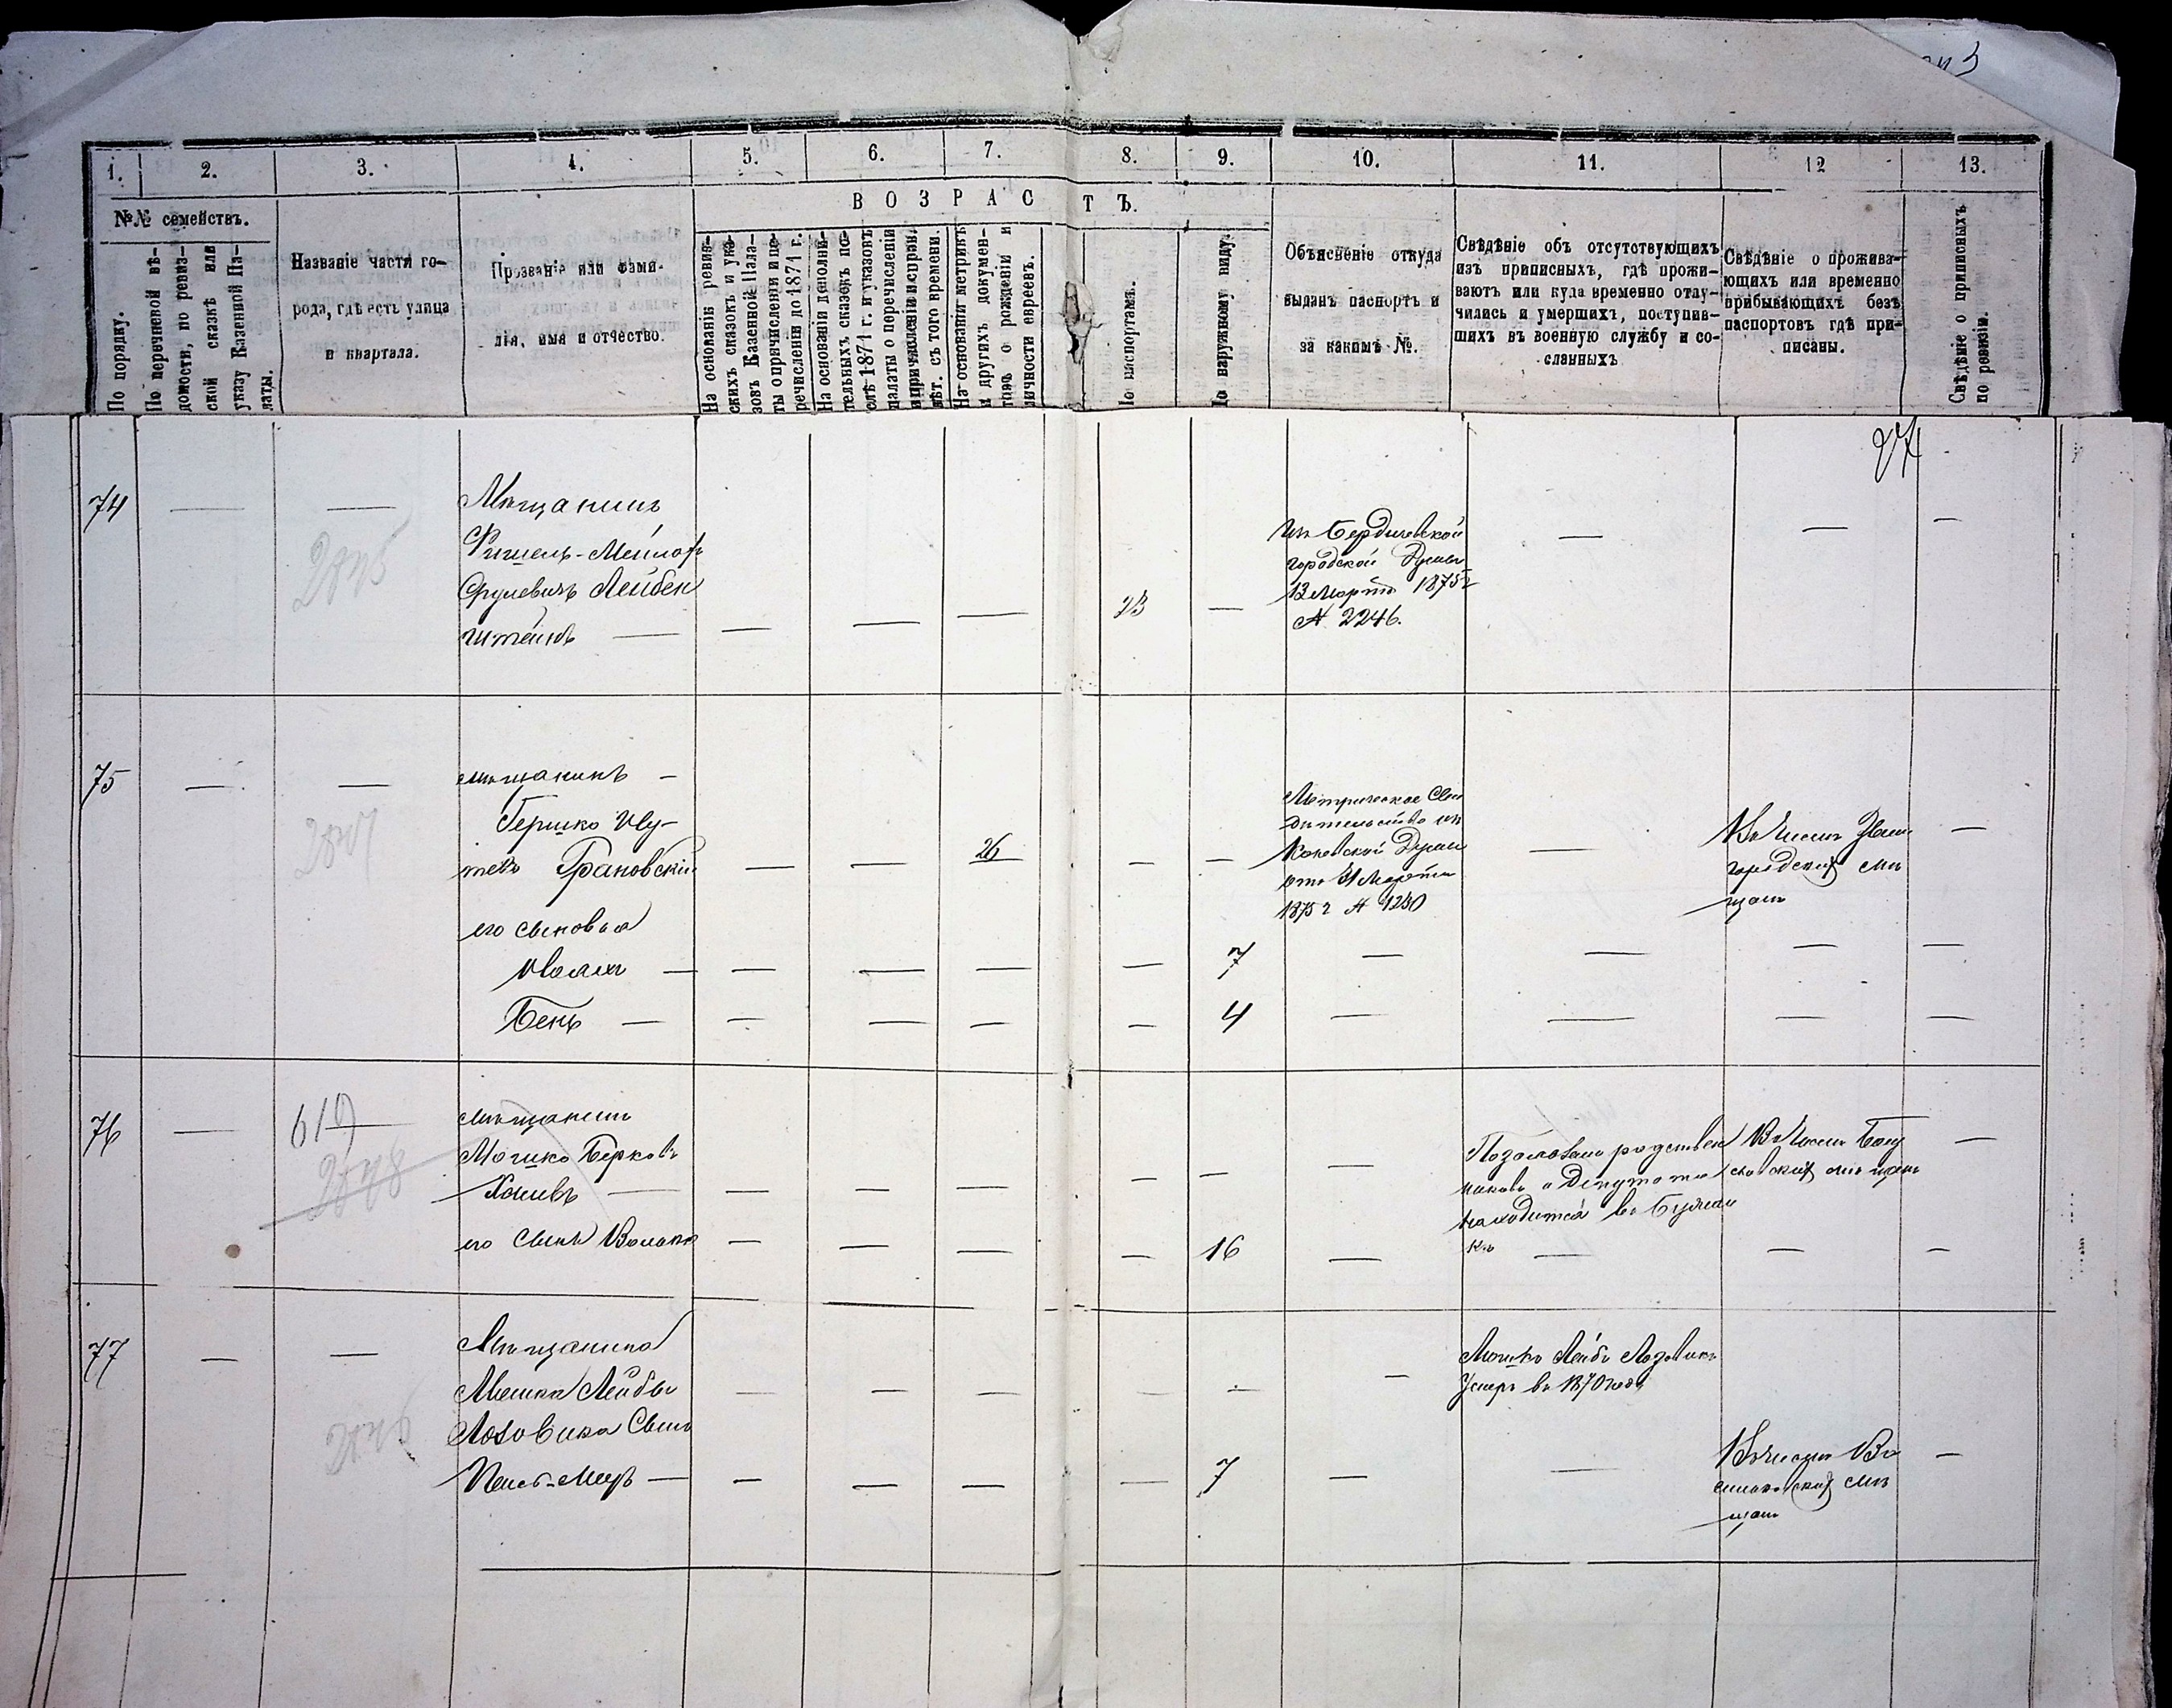 1.
2.
3.
4.
5.
6.
7.
8.
9.
10.
11.
12
13.
№№ семействъ.
В О З Р А С Т Ъ.
По порядку.
По перечневой вѣ-
домости, по ревиз-
ской сказкѣ или
указу Казенной Па-
латы.
Названіе части го-
рода, гдѣ есть улица
и квартала.
Прозваніе или фами-
лія, имя и отчество.
На основаніи ревиз-
скихъ сказокъ и ука-
зовъ Казенной Пала-
ты о причисленіи и пе-
речисленіи до 1871 г.
На основаніи дополни-
тельныхъ сказокъ по-
слѣ 1871 г. и указовъ
палаты о перечисленіи
На основаніи метрикъ
и другихъ докумен-
товъ о рожденіи и
личности евреевъ.
По паспортамъ.
По наружному виду.
Объясненіе откуда
выданъ паспортъ и
за какимъ №.
Свѣдѣніе объ отсутствующихъ
изъ приписныхъ, гдѣ прожи-
ваютъ или куда временно отлу-
чились и умершихъ, поступив-
шихъ въ военную службу и со-
сланныхъ
Свѣдѣніе о прожива-
ющихъ или временно
прибывающихъ безъ
паспортовъ гдѣ при-
писаны.
Свѣдѣніе о приписныхъ
по ревизіи.
27
74
Мѣщанинъ
Фишель-Мейлохъ
Срулевичъ Лейбен
штейнъ
23
Изъ Бердичевской
городской Думы
13 Марта 1875 г
№ 2246.
75
мѣщанинъ
Гершко Иу-
Грановскій
26
Метрическое Сви
дѣтельство изъ
Каневской Думы
отъ 31 Марта
1875 г № 1230
Въ числѣ Звени
городскихъ мѣ
щанъ
его сыновья
7
Бень
4
76
619
2848
мѣщанинъ
Мошко Берковъ
его сынъ Волько
16
родствен
никовъ и Депутата
находится въ
Въ числѣ Богу
славскихъ мѣщанъ
77
Мѣщанина
Мошка Лейбы
Лозовика Сынъ
7
Мошко Лейба Лозовикъ
Умеръ въ 1870 году
Въ числѣ Ва
сильковскихъ мѣ
щанъ